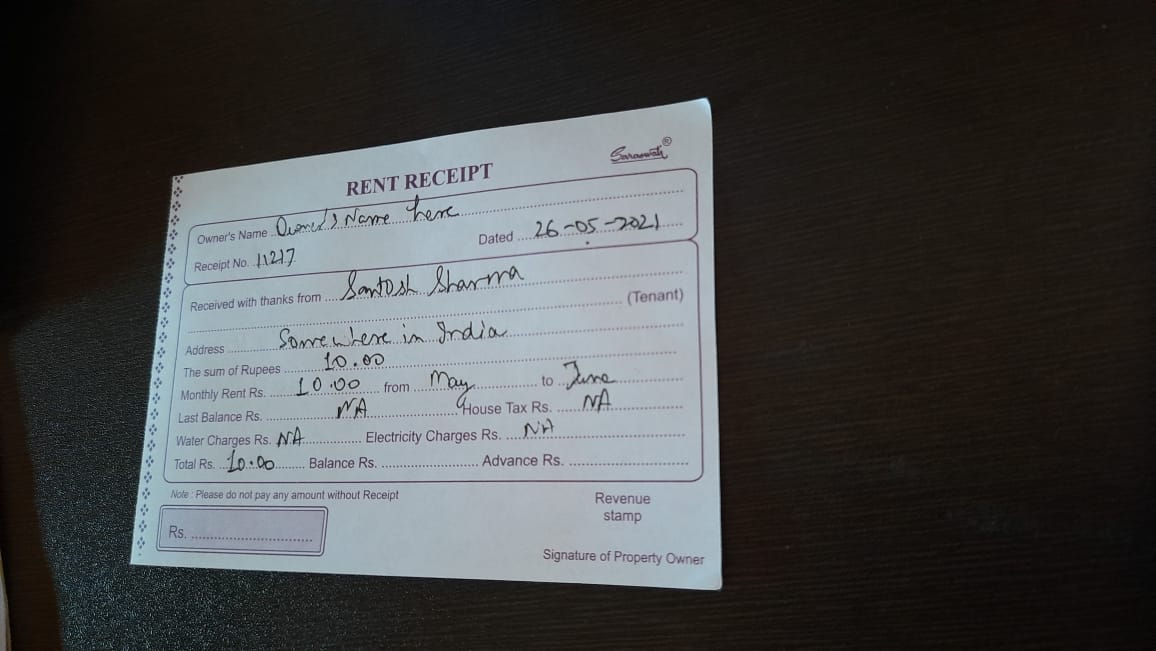 Saraswati®
RENT RECEIPT
Owner's Name Owner's Name here
Receipt No. 11217 Dated 26-05-2021
Received with thanks from Santosh Sharma
(Tenant)
Address Somewhere in India
The sum of Rupees 10.00
Monthly Rent Rs. 10.00 from May to June
Last Balance Rs. NA House Tax Rs. NA
Water Charges Rs. NA Electricity Charges Rs. NA
Total Rs. 10.00 Balance Rs. Advance Rs.
Note : Please do not pay any amount without Receipt
Revenue
stamp
Rs.
Signature of Property Owner